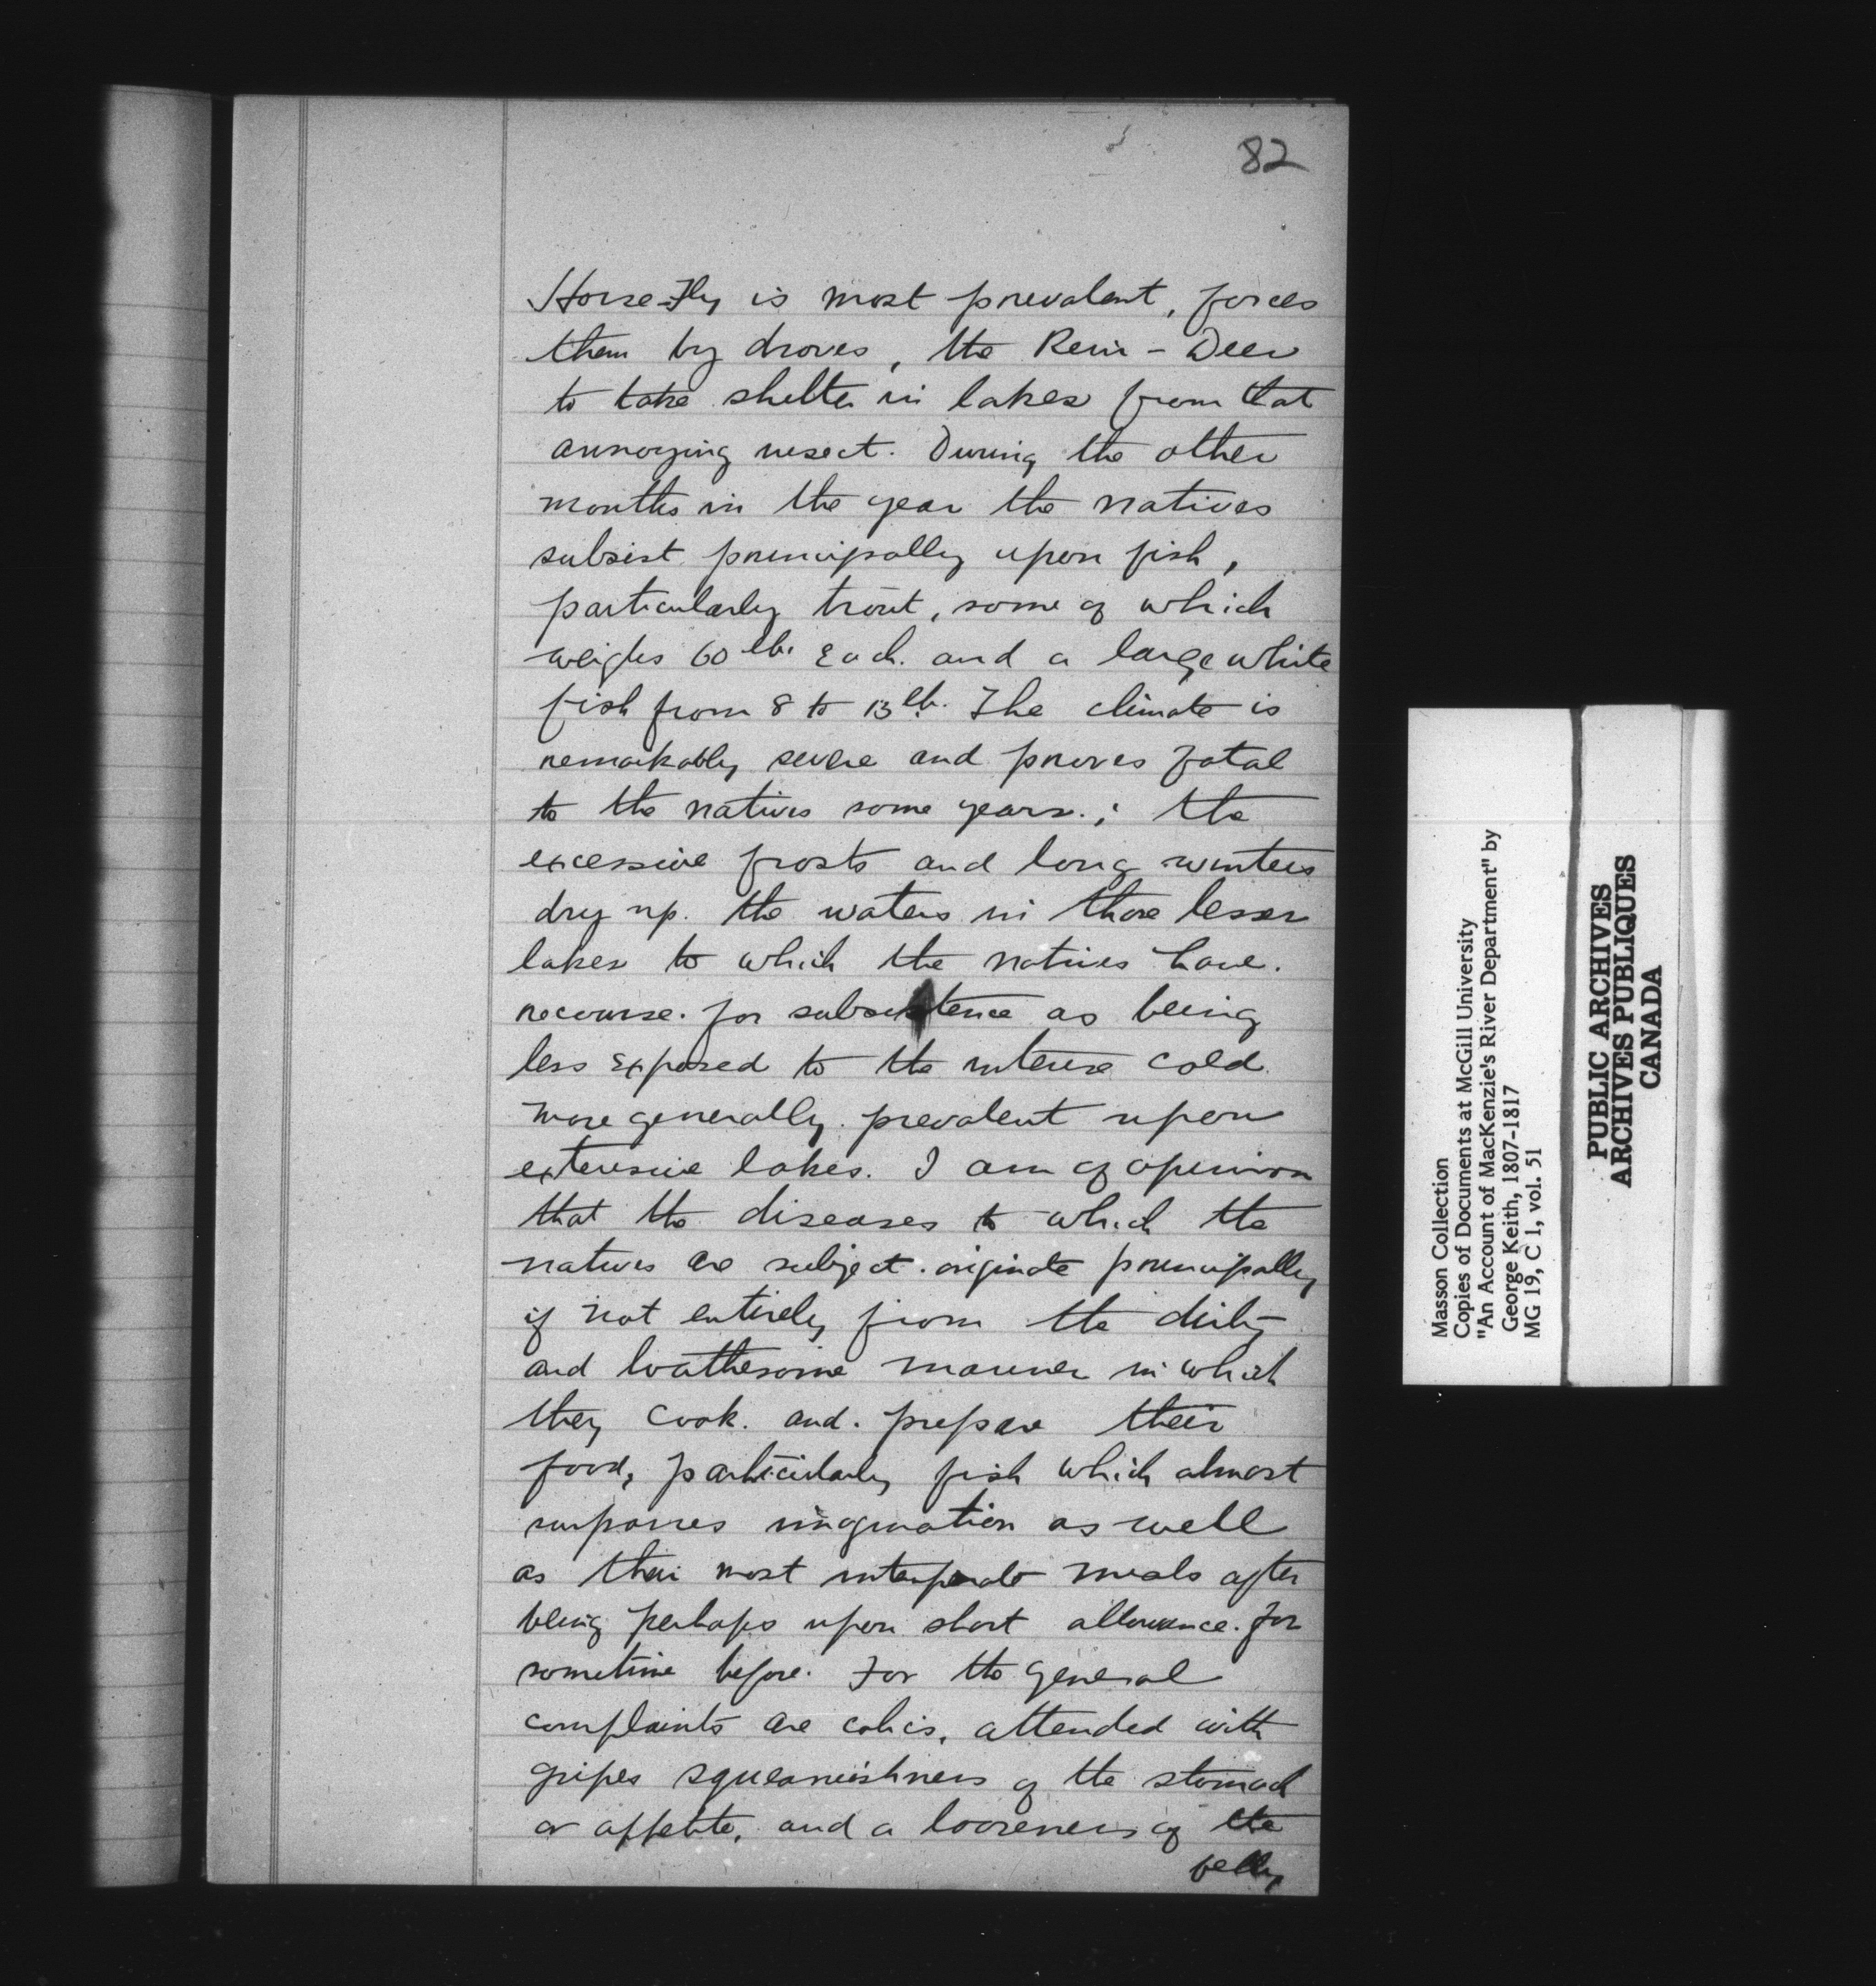 82
Horse-Fly is most prevalent, forces
them by droves, the Rein-Deer
to take shelter in lakes from that
annoying insect. During the other
months in the year the natives
subsist principally upon fish,
particularly trout, some of which
weighs 60 lbs. Each. and a large white
fish from 8 to 13 lb. The climate is
remarkably severe and proves fatal
to the natives some years.; the
excessive frosts and long winters
dry up. the waters in those lesser
lakes to which the natives have.
recourse. for subsistence as being
less exposed to the intense cold
more generally. prevalent upon
extensive lakes. I am of opinion
that the diseases to which the
natives are subject. originate principally
if not entirely from the dirty
and loathesome manner in which
they cook. and. prepare their
food, particularly fish which almost
surpasses imagination as well
as their most intemperate meals after
being perhaps upon short allowance. for
sometime before. For the general
complaints are colics, attended with
gripes squeamishness of the stomach
or appetite, and a looseness of the
belly
Masson Collection
Copies of Documents at McGill University
"An Account of MacKenzie's River Department" by
George Keith, 1807-1817
MG 19, C 1, vol. 51
PUBLIC ARCHIVES
ARCHIVES PUBLIQUES
CANADA